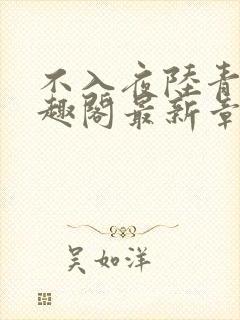 不入夜陸青
趣閣最新章
吴如洋